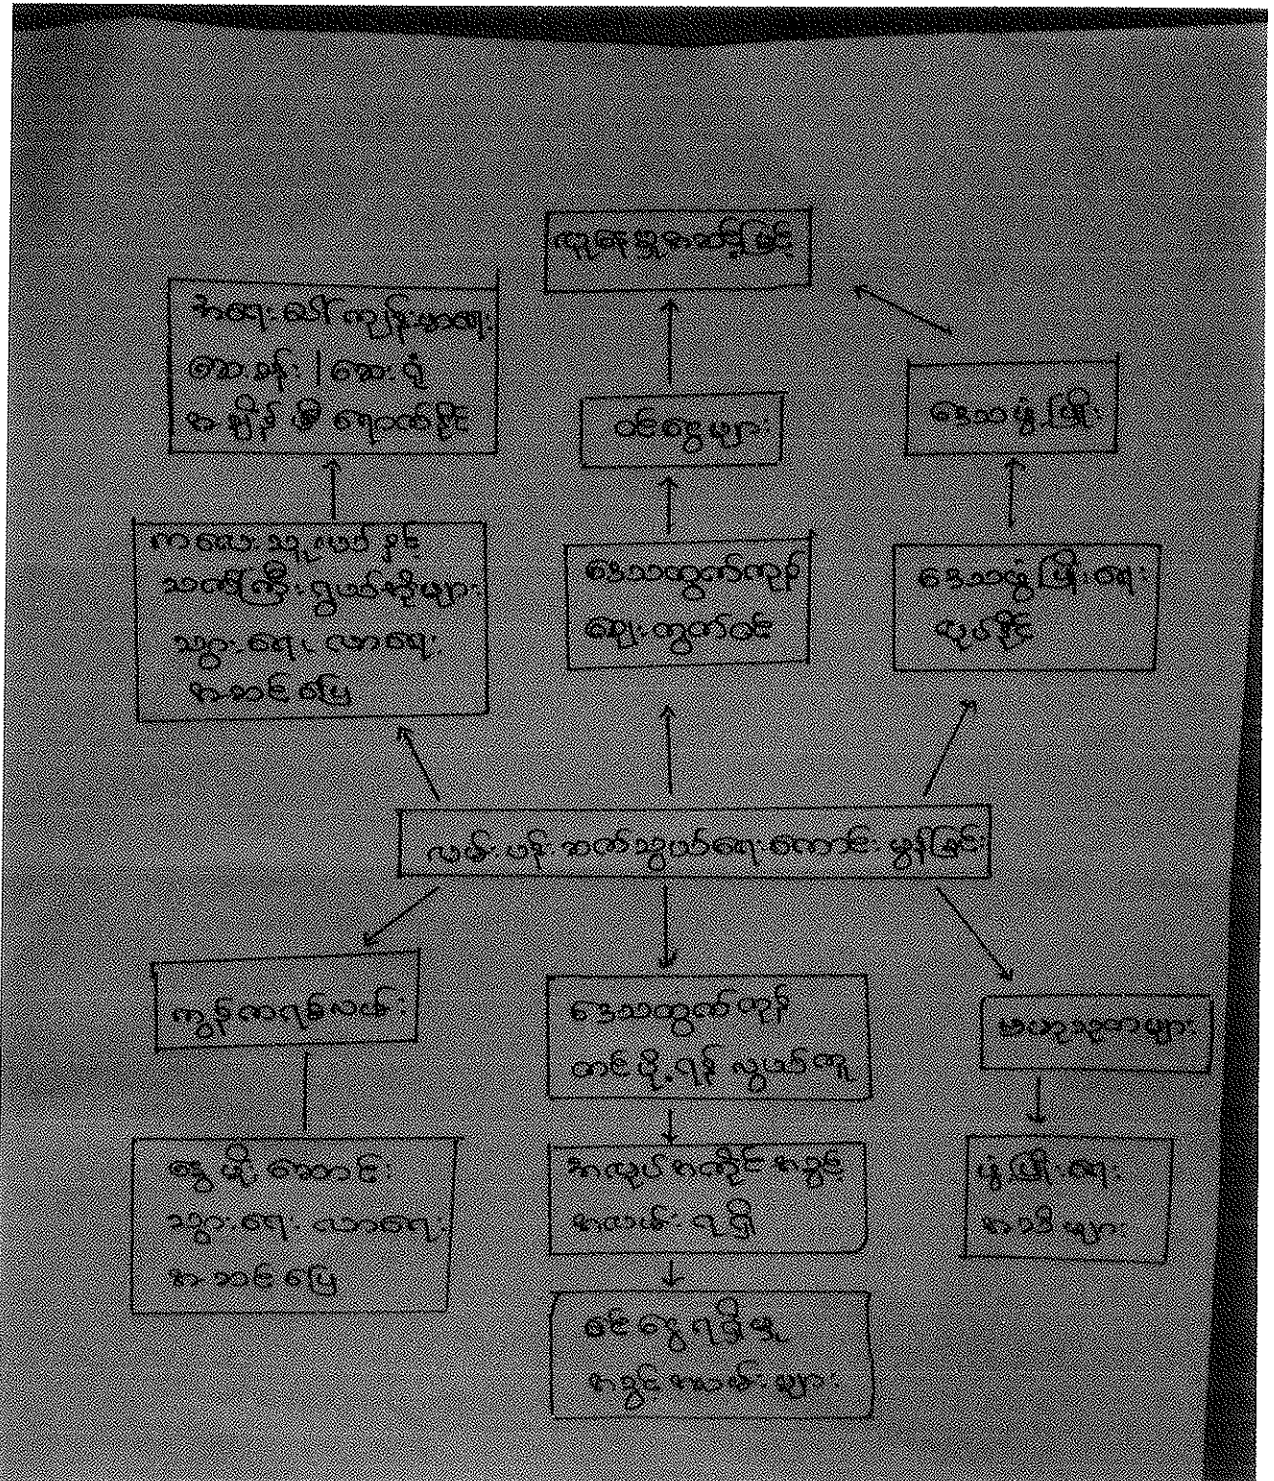 လူနေမှုအဆင့်မြင့်
အရေးပေါ်ကျန်းမာရေး
ဆေးခန်း | ဆေးရုံ
အချိန်မီ ရောက်နိုင်
ဝင်ငွေများ
ဒေသဖွံ့ဖြိုး
ကလေးသူငယ် နှင့်
သက်ကြီးရွယ်အိုများ
သွားရေး လာရေး
အဆင်ပြေ
ဒေသထွက်ကုန်
ဈေးကွက်ဝင်
ဒေသဖွံ့ဖြိုးရေး
လုပ်နိုင်
လမ်းပန်းဆက်သွယ်ရေးကောင်းမွန်ခြင်း
ကွန်ကရစ်လမ်း
ဒေသထွက်ကုန်
တင်ပို့ရန် လွယ်ကူ
ဗဟုသုတများ
နွေ မိုး ဆောင်း
သွားရေး လာရေး
အဆင်ပြေ
အလုပ်အကိုင်အခွင့်
အလမ်းရရှိ
ဖွံ့ဖြိုးရေး
ဝင်ငွေရရှိမှု
အခွင့်အလမ်းများ